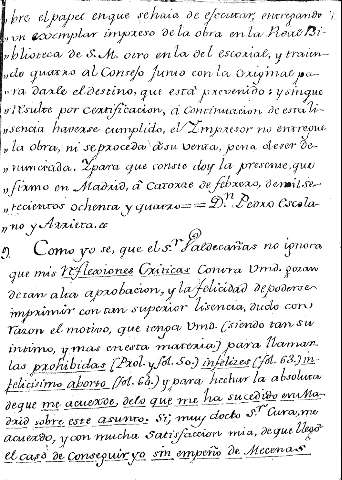 „bre el papel en que se haia de efecutar, entregando
„un exemplar impreso de la obra en la Real Bi-
„blioteca de S.M. otro en la del escorial, y traien-
„do quatro al Consejo junto con la original pa-
„ra darle el destino, que está prevenido: y sin que
„resulte por certificacion, á continuacion de esta li-
„sencia haverse cumplido, el Impresor no entregue
„la obra, ni se proceda á su venta, pena de ser de-
„nunciada. Y para que conste doy la presente, que
„firmo en Madrid, á Catorze de febrero, de mil se-
„tecientos ochenta y quatro == D.n Pedro Escola-
„no y Arrieta.
9. Como yo se, que el s.r Valdecañas no ignora
que mis Reflexiones Criticas Contra Vmd. gozan
de tan alta aprobacion, y la felicidad de poderse
imprimir con tan superior lisencia, dudo con
razon el motivo, que tenga Vmd. (siendo tan su
intimo, y mas en esta materia) para llamar
las prohibidas (Prol. y fol. 50.) infelizes (fol. 63.) in-
felicisimo aborto (fol. 64.) y para hechar la absoluta
de que me acuerde, de lo que me ha sucedido en Ma-
drid sobre este asunto. Si, muy docto s.r Cura, me
acuerdo, y con mucha satisfaccion mia, de que llegó
el caso de Conseguir yo sin empeño de Mecenas